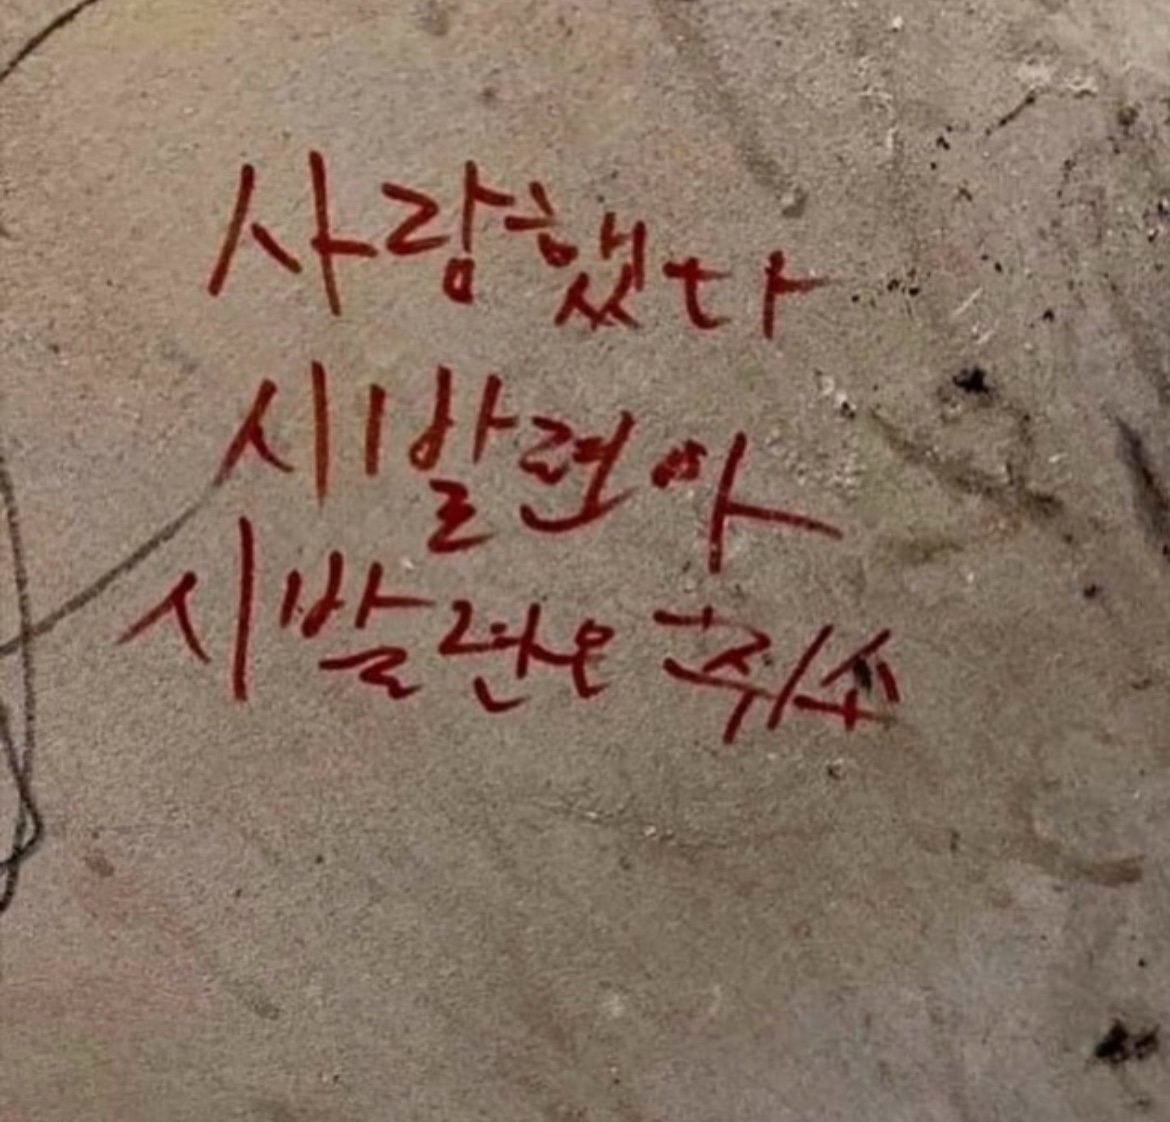 사랑했다
시발련아
시발련은 취소